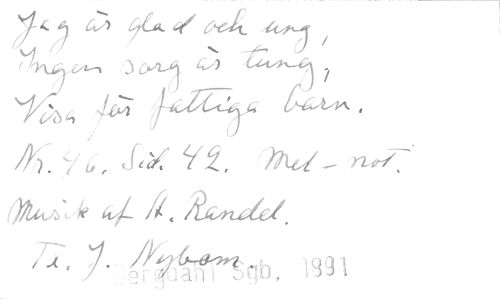 Jag är glad och ung,
Ingen sorg är tung,
Visa för fattiga barn.
Nr. 46. Sid. 42. Mel-not.
Musik af A. Randel.
Te. J. Nybom.
Bergdahl Sgb. 1991